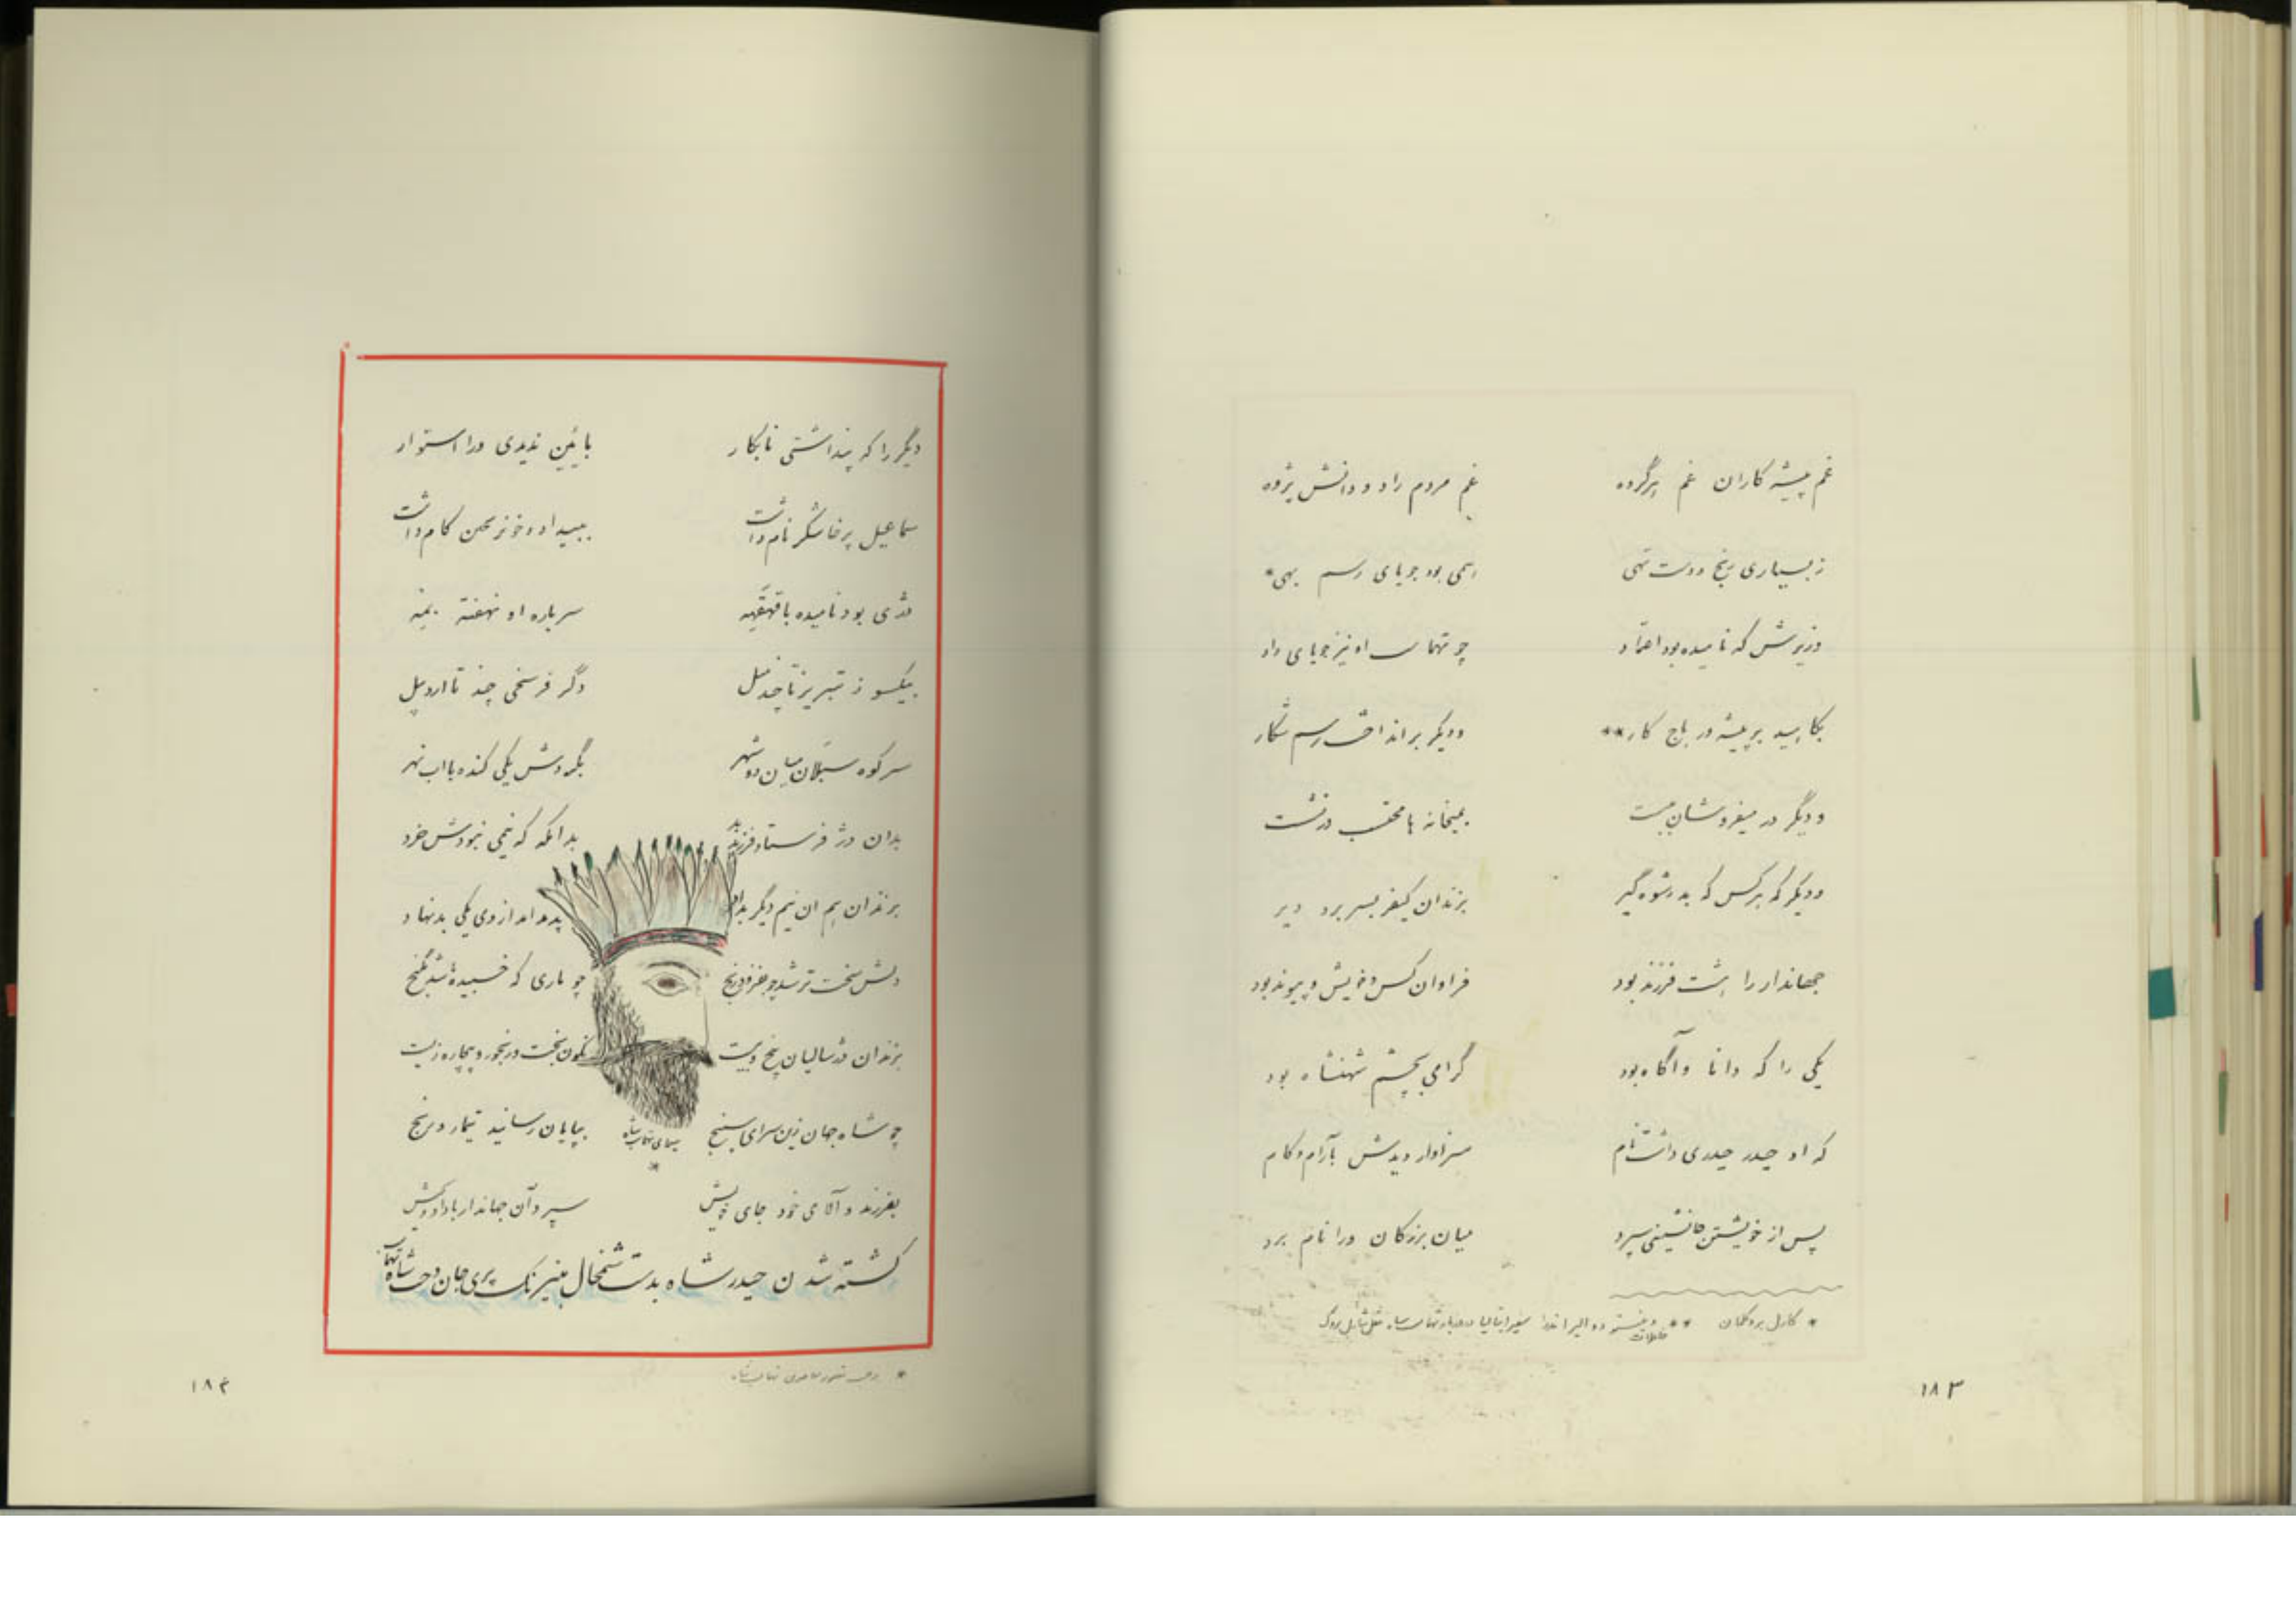 غم پیشه کاران غم هر گروه غم مردم راد و دانش پژوه
ز بسیاری رنج و دست تهی همی بود جویای رسم بهی*
وزیرش که نامیده بود اعتماد چو تهماسب او نیز جویای داد
بکاهید بر پیشه ور باج کار** و دیگر برانداخت رسم شکار
و دیگر در میفروشان ببست بمیخانه ها محتسب درنشست
و دیگر که هر کس که بد رشوه گیر بزندان کیفر بسر برد دیر
جهاندار را هشت فرزند بود فراوان کس و خویش و پیوند بود
یکی را که دانا و آگاه بود گرامی بچشم شهنشاه بود
که او حیدر حیدری داشت نام سزاوار دیدش بآرام و کام
پس از خویشتن جانشینی سپرد میان بزرگان ورا نام برد
* کارل بروکلمان ** خاطرات وینسنتو دو الساندرا سفیر ایتالیا دربار تهماسب
۱۸۳
دیگر را که پنداشتی نابکار بایین ندیدی ورا استوار
سماعیل پرخاشگر نام داشت ببیداد و خونریختن کام داشت
دژی بود نامیده با قهقهه سر باره او نهفته بمه
بیکسو ز تبریز تا چند میل دگر فرسخی چند تا اردبیل
سر کوه سبلان میان دو شهر بگردش یکی کنده با اب نهر
بدان دژ فرستاد فرزند بد بدانگه که نیمی نبودش خرد
بزندان هم ان نیم دیگر بداد پدید امد از وی یکی بدنهاد
دلش سخت تر شد چو بفزود رنج چو ماری که خسبیده شد بگنج
بزندان دژ سالیان پنج و بیست نگون بخت و رنجور و بیچاره زیست
چو شاه جهان زین سرای سپنج بپایان رسانید تیمار و رنج
سیمای تهماسب شاه
*
بفرزند و آلای خود جای خویش سپرد آن جهاندار با داد و کیش
کشته شدن حیدر شاه بدست شمخال بنیرنگ پری جان دخت شاه تهماسب
*
۱۸۴